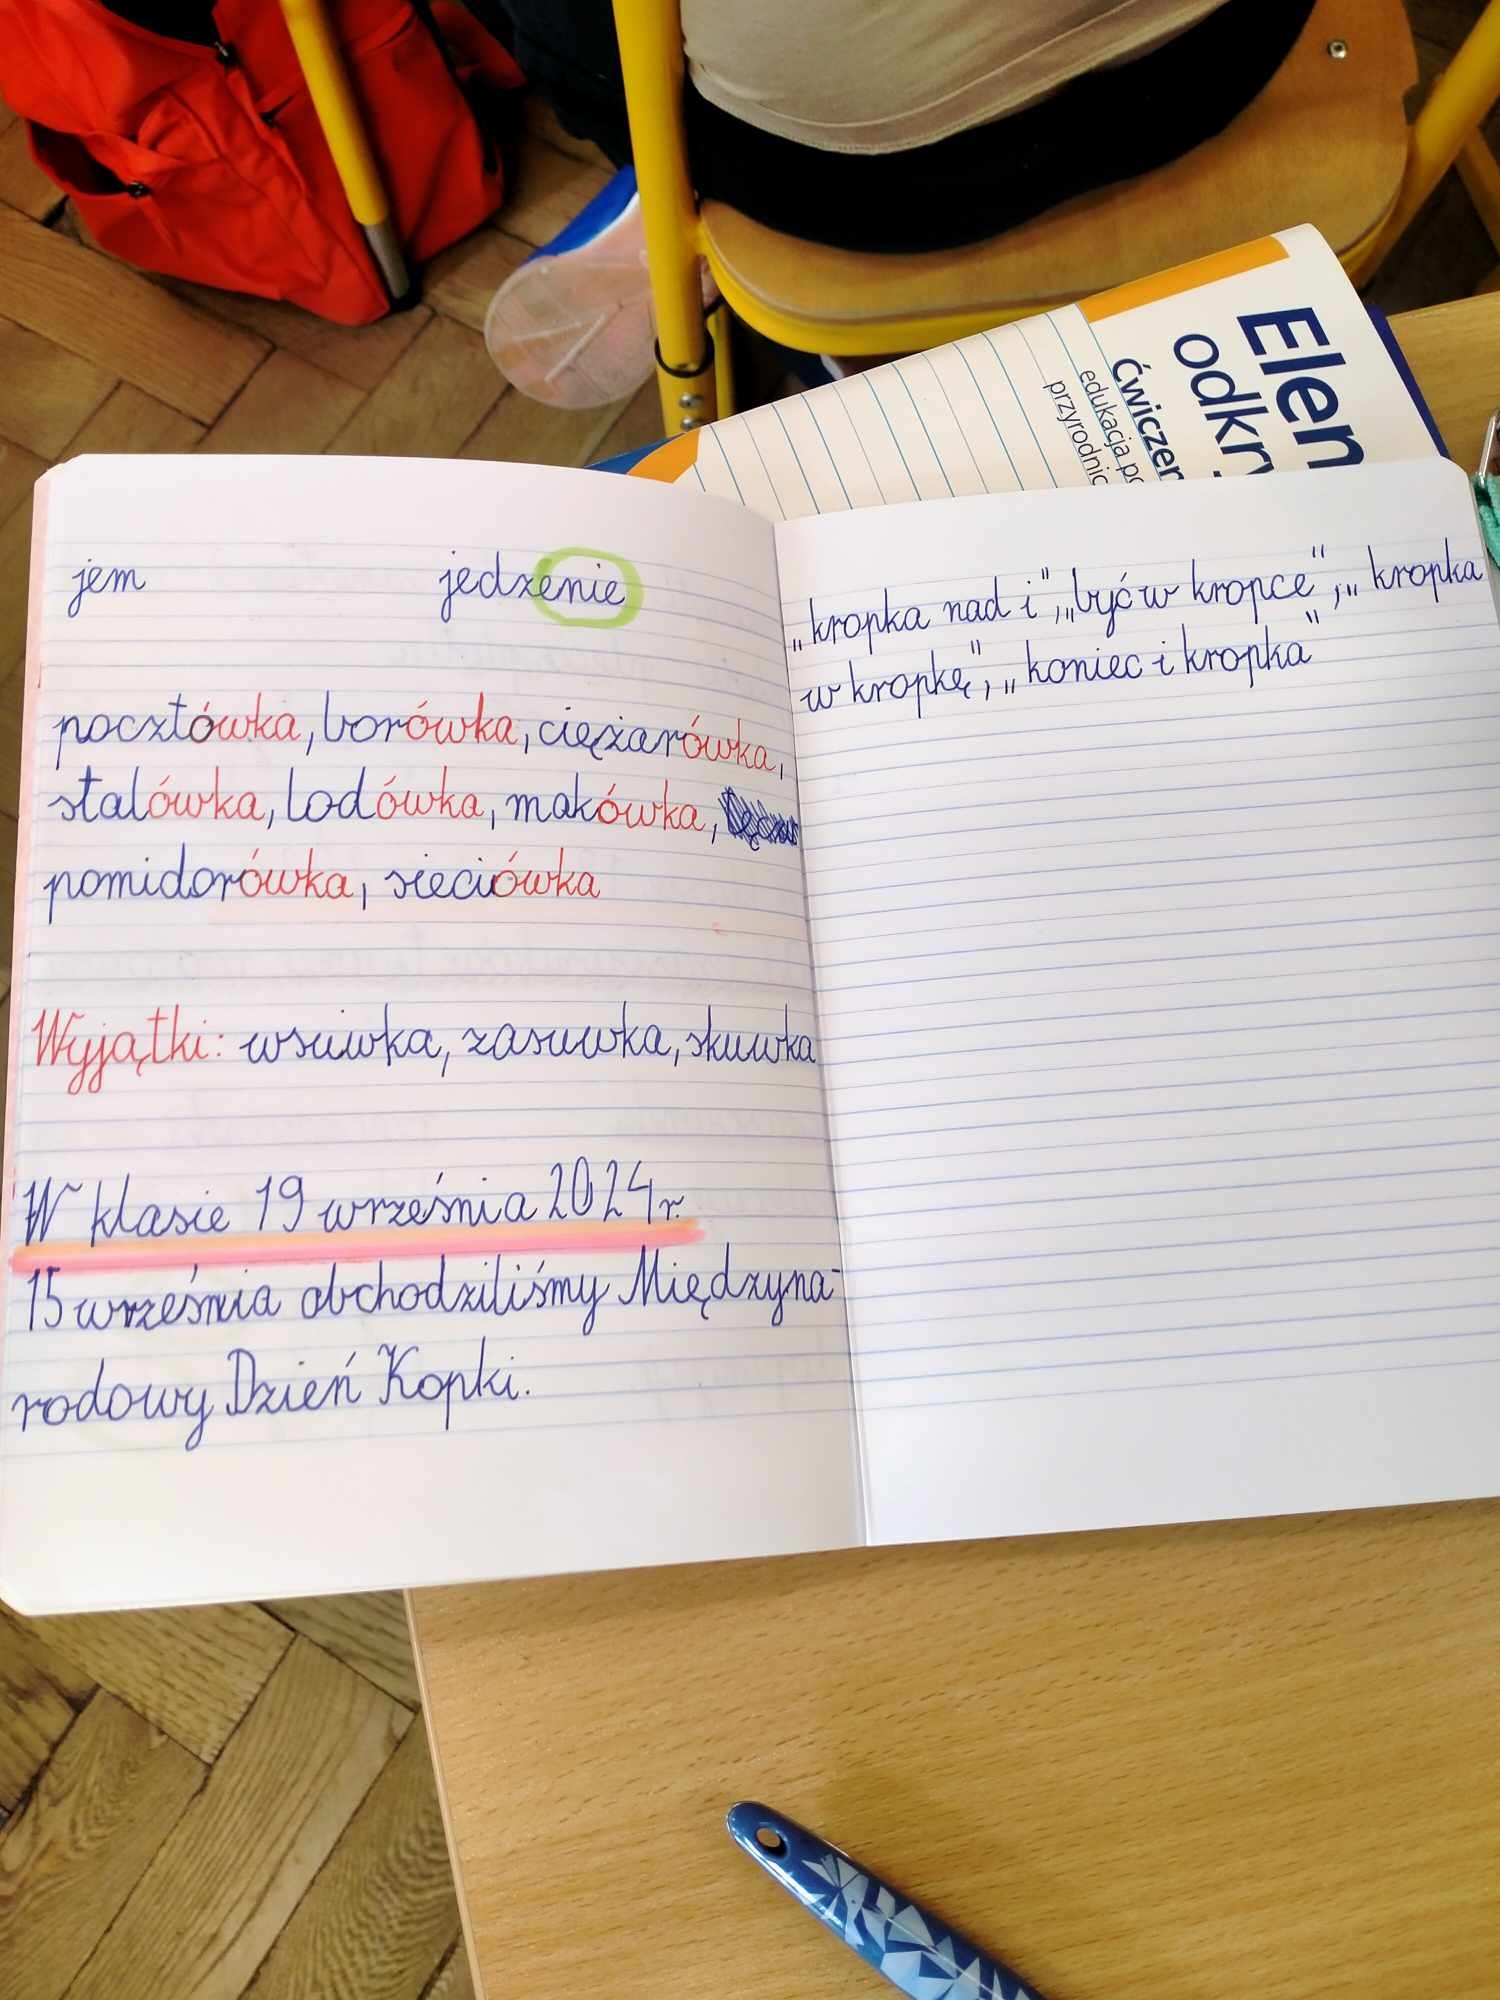 Elem
odkry
Ćwiczen
edukacja po
przyrodnic
jem jedzenie
pocztówka, borówka, ciężarówka,
stalówka, lodówka, makówka,
pomidorówka, sieciówka
Wyjątki: wsuwka, zasuwka, skuwka
W klasie 19 września 2024 r.
15 września obchodziliśmy Międzyna-
rodowy Dzień Kopki.
„kropka nad i”, „być w kropce”, „kropka
w kropkę”, „koniec i kropka”